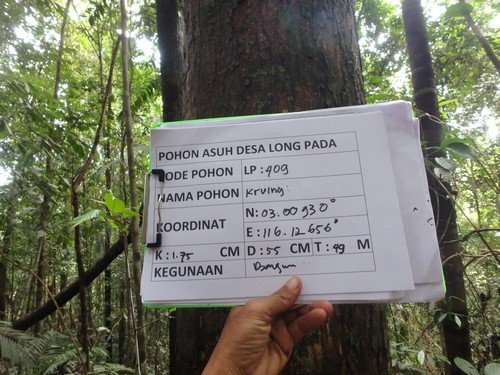 POHON ASUH DESA LONG PADA
KODE POHON LP : 409
NAMA POHON Kruing
KOORDINAT N : 03.00930°
E : 116.12656°
K : 1.75 CM D : 55 CM T : 49 M
KEGUNAAN